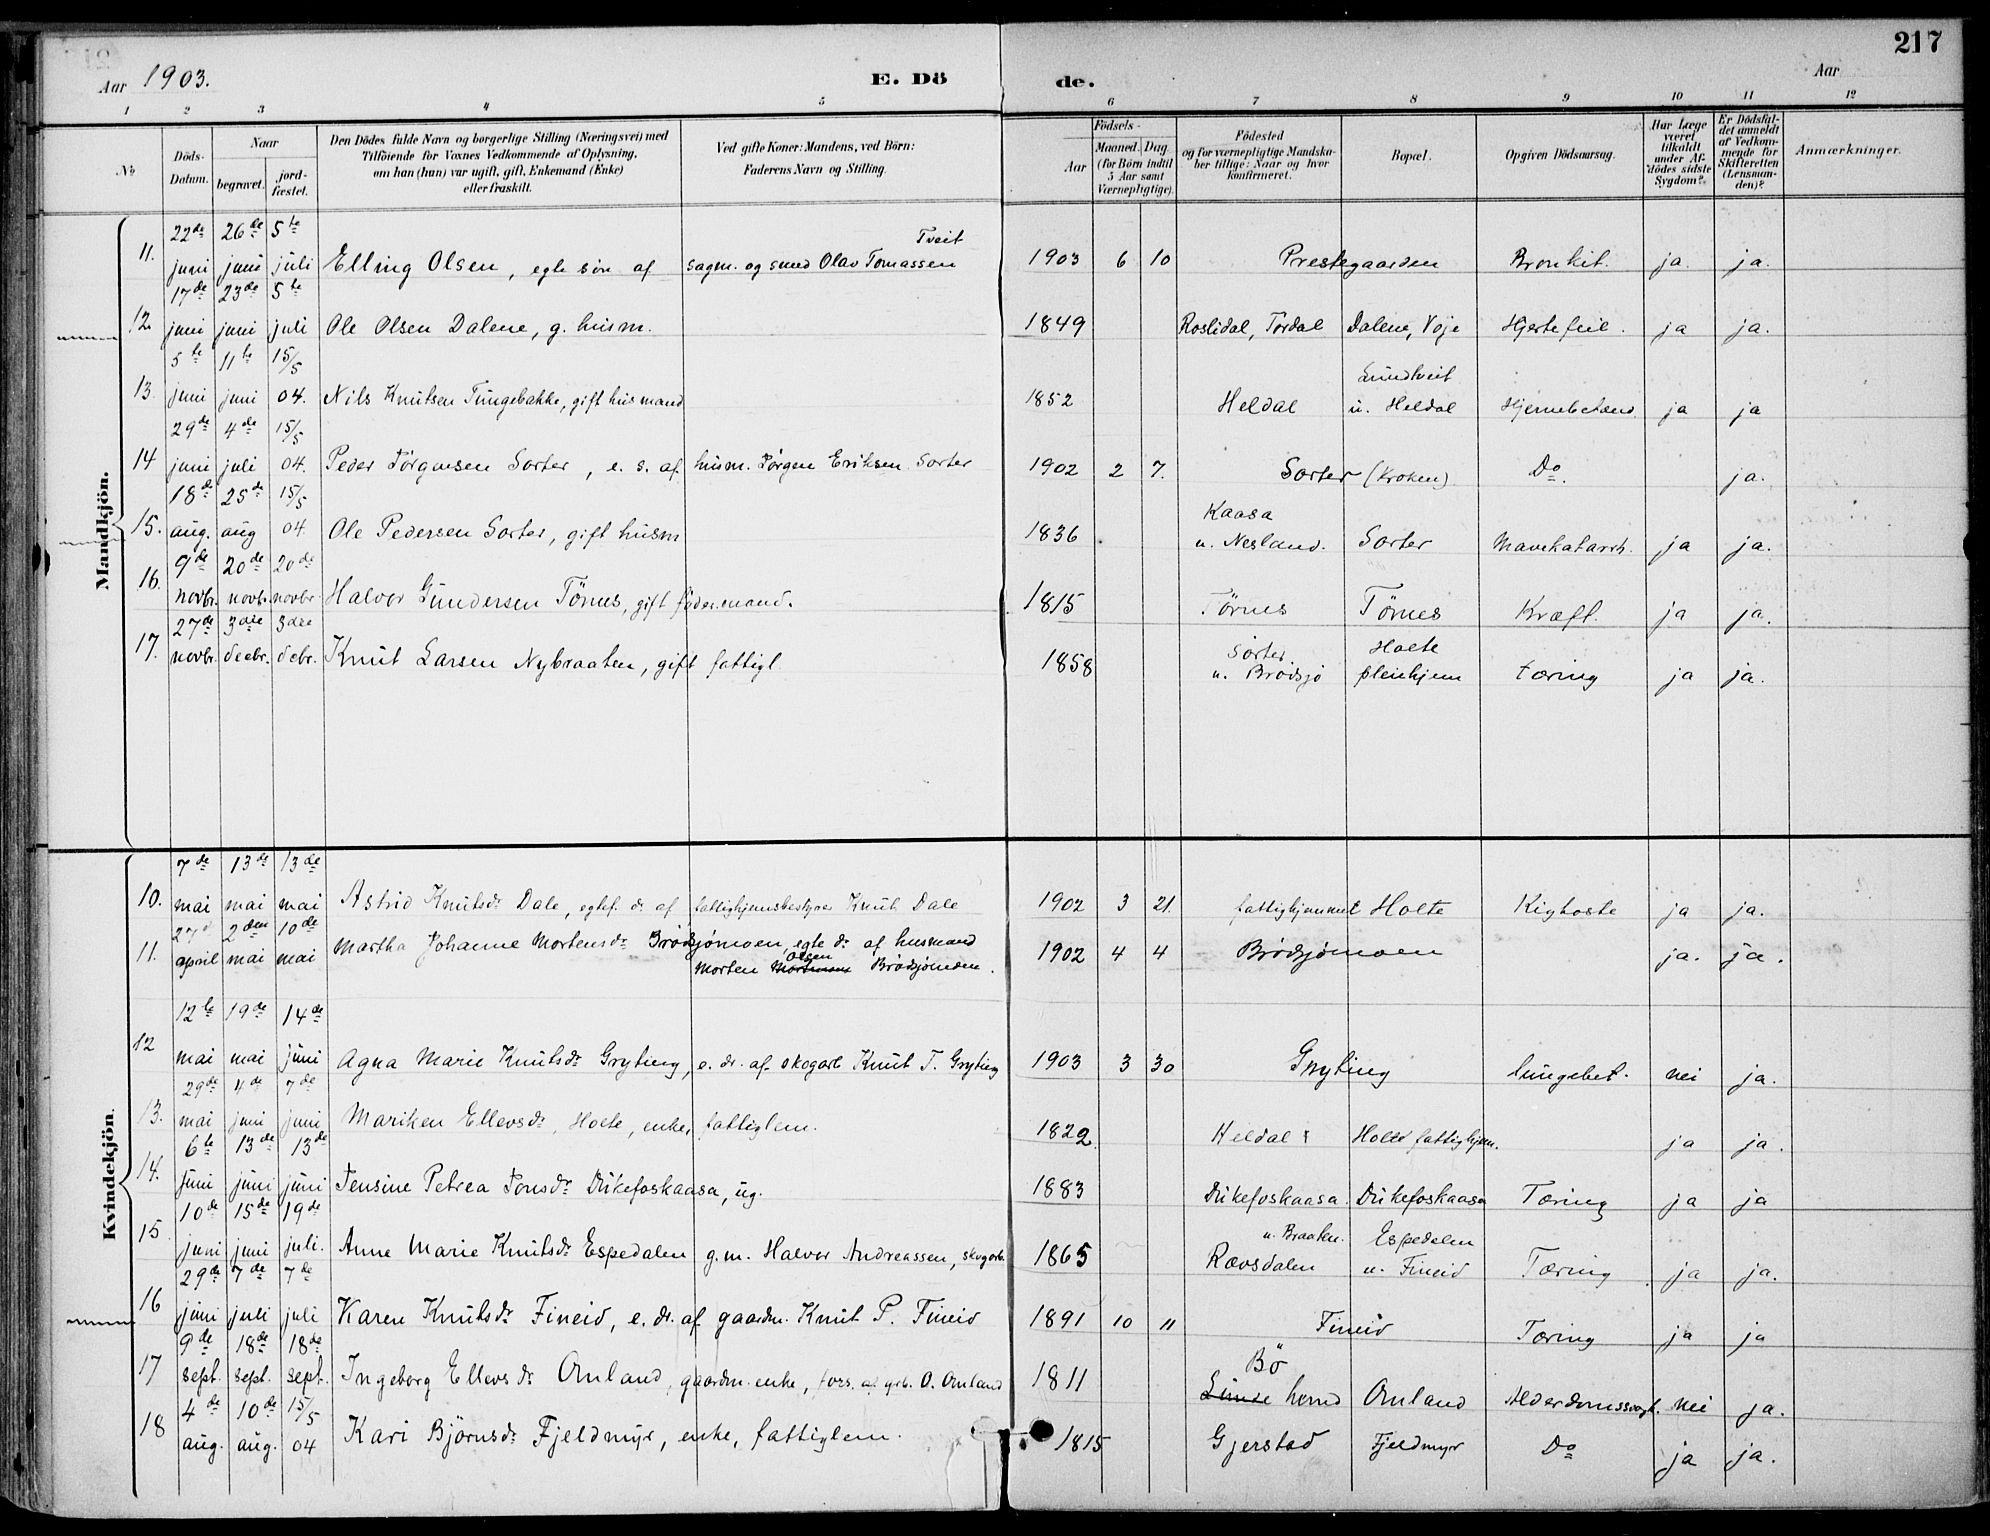 217
Aar 1903. E. Döde. Aar
1 2 3 4 5 6 7 8 9 10 11 12
№
Döds-Datum.
Naar
begravet.
jordfæstet.
Den Dödes fulde Navn og borgerlige Stilling (Næringsvei) med
Tilföiende for Voxnes Vedkommende af Oplysning,
om han (hun) var ugift, gift, Enkemand (Enke)
eller fraskilt.
Ved gifte Koner: Mandens, ved Börn:
Faderens Navn og Stilling.
Födsels-
Aar
Maaned. Dag.
(for Börn indtil
5 Aar samt
Værnepligtige).
Födested
og for værnepligtige Mandskaber tillige: Naar og hvor
konfirmeret.
Bopæl.
Opgiven Dödsaarsag.
Har Læge
været
tilkaldt
under Afdödes sidste
Sygdom?
Er Dödsfaldet anmeldt
af Vedkommende for
Skifteretten
(Lensmanden)?
Anmærkninger.
Mandkjön.
22de 26de 5te Tveit
11. juni juni juli Elling Olsen, egte søn af sagm. og smed Olav Tomassen 1903 6 10 Prestegaarden Bronkit. ja. ja.
17de 23de 5te
12. juni juni juli Ole Olsen Dalene, g. husm. 1849 Roslidal, Tørdal Dalene, Voje Hjertefeil. ja ja.
5te 11te 15/5 Lundtveit
13. juni juni 04. Nils Knutsen Tungebakke, gift husmand 1852 Heldal u. Heldal Hjernebetænd. ja ja
29de 4de 15/5
14 juni juli 04. Peder Jörgensen Sorter, e. s. af husm. Jörgen Eriksen Sorter 1902 2 7. Sorter (Kroken) Do. ja.
18de 25de 15/5 Kaasa
15. aug. aug 04. Ole Pedersen Sorter, gift husm 1836 u. Nesland. Sorter Mavekatarrh. ja ja.
9de 20de 20de
16. novbr. novbr. novbr. Halvor Gundersen Törnes, gift föder.mand. 1815 Törnes Törnes Kræft. ja ja.
27de 3die 3die Sorter Holte
17. novbr. decbr. debr. Knut Larsen Nybraaten, gift fattigl 1858 u. Brödsjö pleiehjem tæring ja ja.
Kvindekjön.
7de 13de 13de
10. mai mai mai Astrid Knutsdr Dale, egtef. dr. af fattighjemsbestyrer Knut Dale 1902 3 21. fattighjemmet Holte Kighoste ja ja.
27d 2den 10de
11. april mai mai Martha Johanne Mortensdr Brödsjömoen, egte dr. af husmand 1902 4 4 Brödsjömoen ja. ja.
Olsen
Morten Brödsjömoen.
12te 19de 14de
12 mai mai juni Agna Marie Knutsdr Gryting, e. dr. af skogarb Knut T. Gryting 1903 3 30 Gryting lungebet. nei ja.
29de 4de 7de
13. mai juni juni Mariken Ellevsdr. Holte, enke, fattiglem. 1822. Heldal Holte fattighjem. ja ja.
6te 13de 13de
14. juni juni juni Jensine Petrea Jonsdr Dukefoskaasa, ug. 1883 Dukefoskaasa. Dukefoskaasa Tæring ja ja
10de 15de 19de u. Braaten. Espedalen
15 juni juni juli. Anne Marie Knutsdr Espedalen g. m. Halvor Andreassen, skogarb. 1865 Rævsdalen u. Fineid Tæring ja ja.
29de 7de 7de
16 juni juli juli Karen Knutsdr Fineid, e. dr. af gaardm. Knut P. Fineid 1891 10 11 Fineid Tæring ja ja
9de 18de 18de Bö
17 sept. sept. sept. Ingeborg Ellevsdr Omland, gaardm. enke, fors. af grb. O. Omland 1811 Lunde herred Omland Alderdomssvagh. nei ja.
4de 10de 15/5
18 aug. aug. 04 Kari Björnsdr Fjeldmyr, enke, fattiglem. 1815 Gjerstad Fjeldmyr Do ja ja.